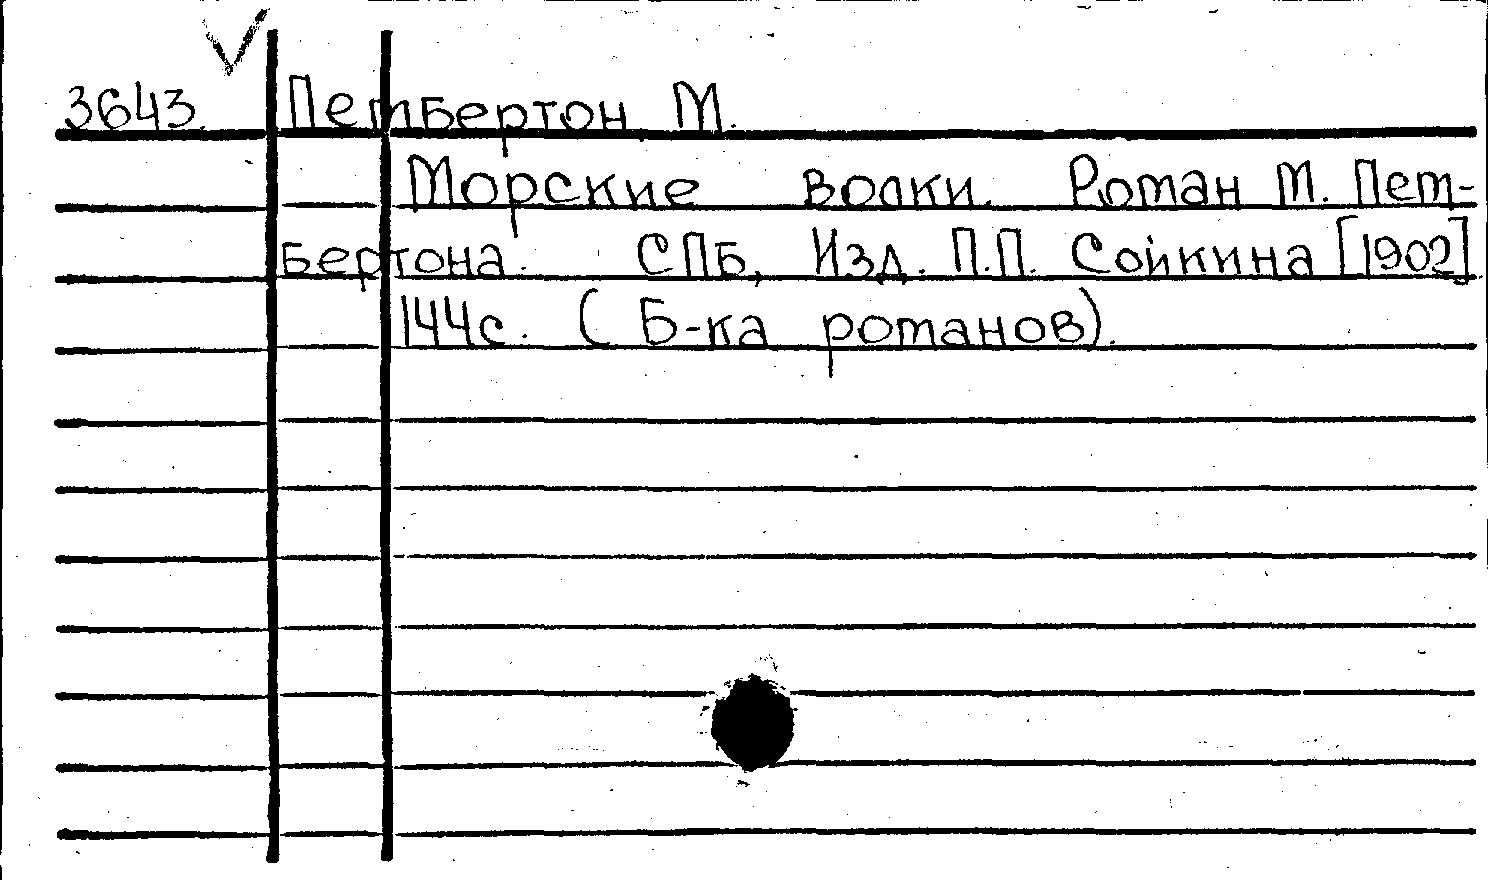 3643 Пембертон М.
Морские волки. Роман М. Пем-
бертона. СПБ, Изд. П.П. Сойкина [1902]
144с. (Б-ка романов).